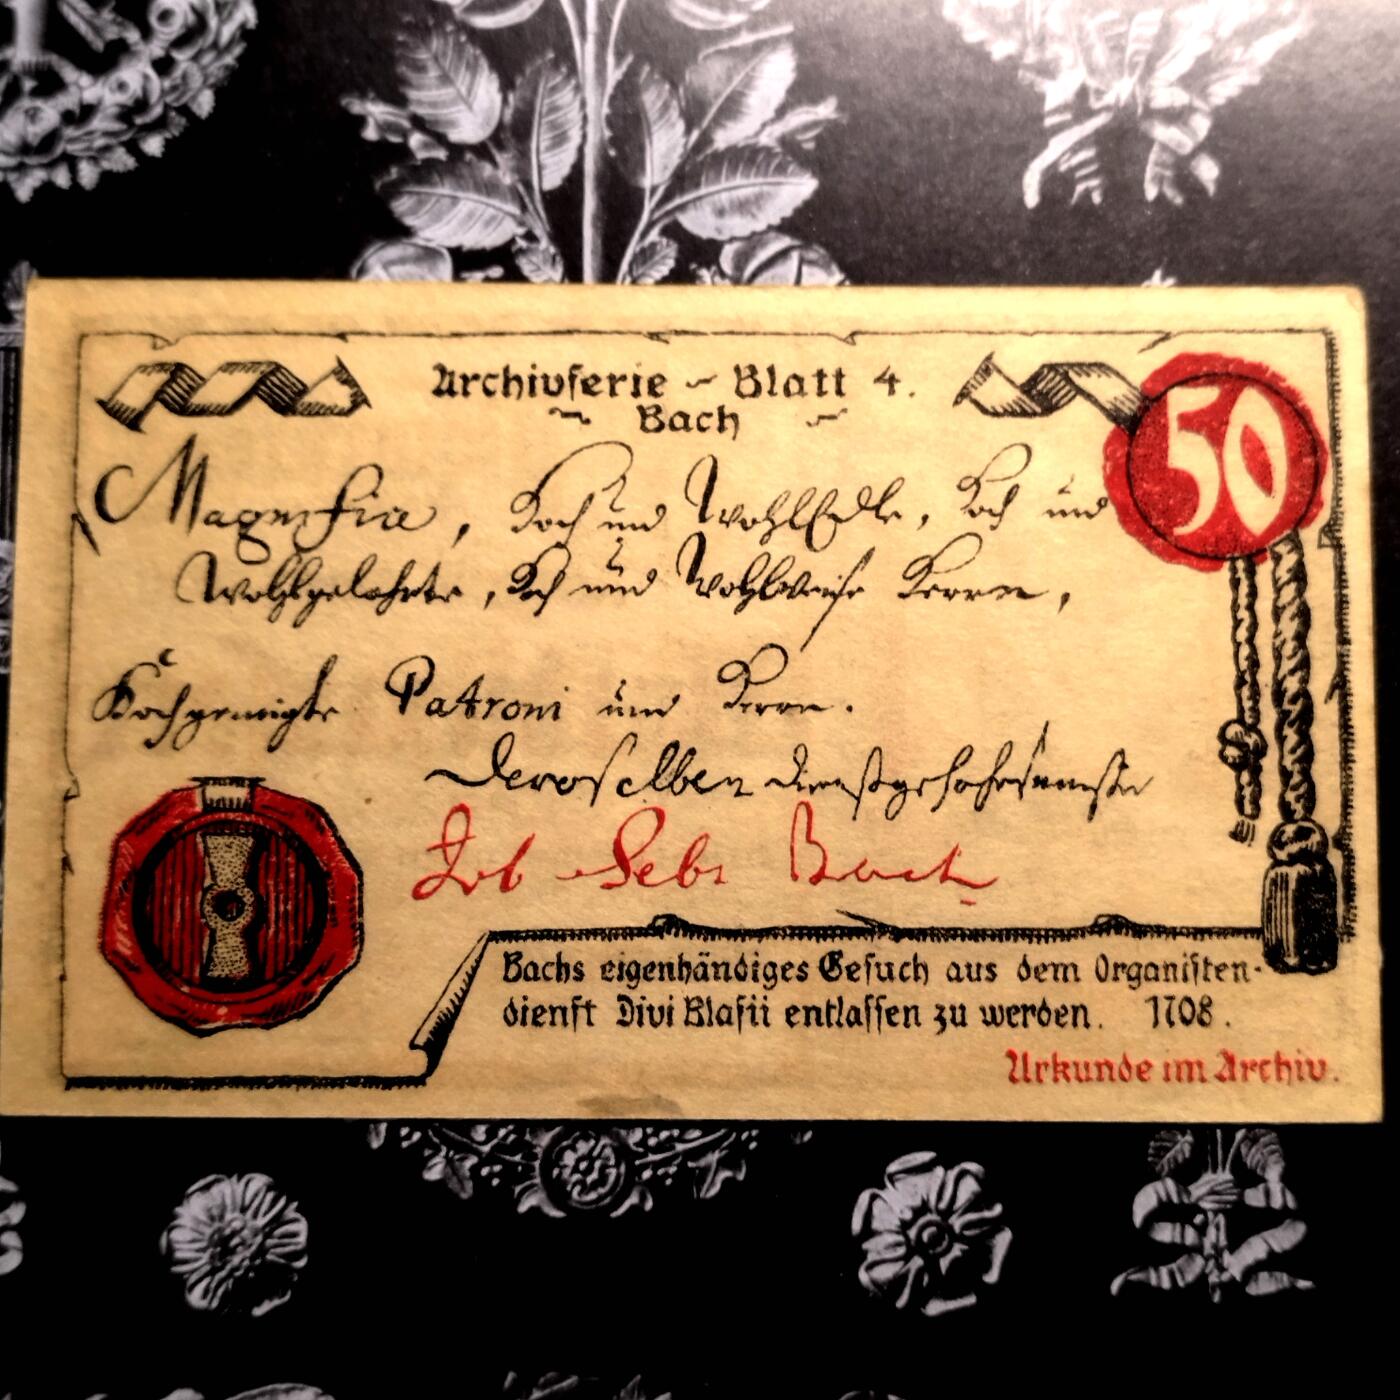 Archivserie ~ Blatt 4.
~ Bach ~
50
Magnifice, Hoch und WohlEdle, Hoch und
Wohlgelahrte, Hoch und Wohlweise Herren,
Hochgeneigte Patroni und Herren.
Deroselben dienstgehorsamster
Joh Sebr Bach
Bachs eigenhändiges Gesuch aus dem Organisten-
dienst Divi Blasii entlassen zu werden. 1708.
Urkunde im Archiv.